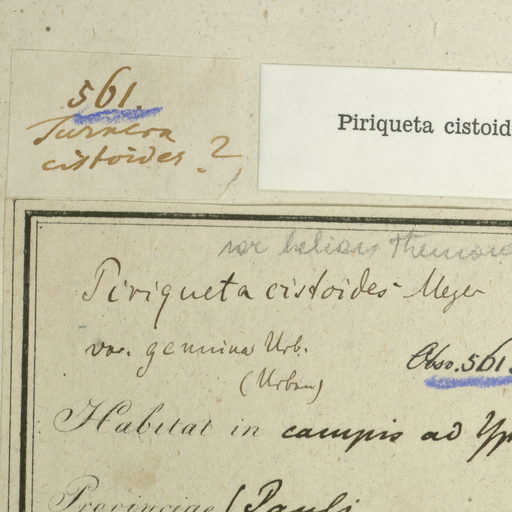 561.
Turnera
cistoides ?
Piriqueta cistoid
var helian themoid
Piriqueta cistoides Meyer
var. genuina Urb.
(Urban)
Obso. 561.
Habitat in campis ad Yp
Provinciae (Pauli